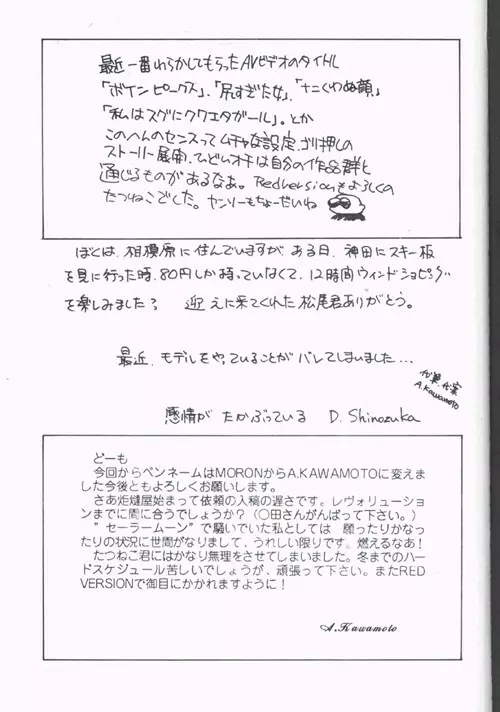 最近一番わらかしてもらったAVビデオのタイトル
「ボインピークス」、「尻すぎた女」、「ナニくわぬ顔」
「私はスグにクワエタガール」。とか
このへんのセンスってムチャな設定、ゴリ押しの
ストーリー展開、ひどいオチは自分の作品群と
通じるものがあるなあ。Redversionもよろしくの
たつねこでした。ヤンソーもちょーだいね
ぼくは、相模原に住んでいますが ある日、神田にスキー板
を見に行った時、80円しか持っていなくて、12時間ウィンドショピング
を楽しみました? 迎えに来てくれた松尾君ありがとう。
最近、モデルをやっていることがバレてしまいました…
代筆、代家
A.Kawamoto
感情がたかぶっている D. Shinozuka
どーも
今回からペンネームはMORONからA.KAWAMOTOに変えま
した今後ともよろしくお願いします。
さあ炬燵屋始まって依頼の入稿の遅さです。レヴォリューショ
ンまでに間に合うでしょうか?(〇田さんがんばって下さい。)
"セーラームーン"で騒いでいた私としては 願ったりかなっ
たりの状況に世間がなりまして、うれしい限りです。燃えるなあ!
たつねこ君にはかなり無理をさせてしまいました。冬までのハー
ドスケジュール苦しいでしょうが、頑張って下さい。またRED
VERSIONで御目にかかれますように!
A.Kawamoto